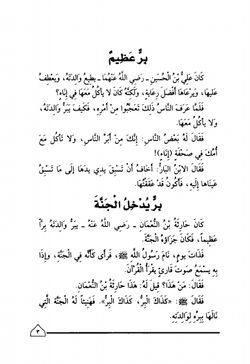 بِرٌّ عَظِيمٌ
كَانَ عَلِيُّ بْنُ الْحُسَيْنِ - رَضِيَ اللَّهُ عَنْهُمَا - يُطِيعُ وَالِدَتَهُ، وَيَعْطِفُ
عَلَيْهَا، وَيَرْعَاهَا أَفْضَلَ رِعَايَةٍ، وَلَكِنَّهُ كَانَ لَا يَأْكُلُ مَعَهَا فِي إِنَاءٍ؟
فَلَمَّا عَرَفَ النَّاسُ ذَلِكَ تَعَجَّبُوا مِنْ أَمْرِهِ، فَكَيْفَ يَبَرُّ وَالِدَتَهُ،
وَلَا يَأْكُلُ مَعَهَا؟
فَقَالَ لَهُ بَعْضُ النَّاسِ: إِنَّكَ مِنْ أَبَرِّ النَّاسِ، وَلَا تَأْكُلُ مَعَ
أُمِّكَ فِي صَحْفَةٍ (إِنَاءٍ)!
فَقَالَ الِابْنُ الْبَارُّ: أَخَافُ أَنْ تَسْبِقَ يَدِي يَدَهَا إِلَى مَا تَسْبِقُ
عَيْنَاهَا إِلَيْهِ، فَأَكُونَ قَدْ عَقَقْتُهَا.
بِرٌّ يُدْخِلُ الْجَنَّةَ
كَانَ حَارِثَةُ بْنُ النُّعْمَانِ - رَضِيَ اللَّهُ عَنْهُ - يَبَرُّ وَالِدَتَهُ بِرًّا
عَظِيمًا، فَكَانَ جَزَاؤُهُ الْجَنَّةَ.
فَذَاتَ يَوْمٍ، نَامَ رَسُولُ اللَّهِ ﷺ، فَرَأَى كَأَنَّهُ فِي الْجَنَّةِ، وَإِذَا
بِهِ يَسْمَعُ صَوْتَ قَارِئٍ يَقْرَأُ الْقُرْآنَ.
فَقَالَ: مَنْ هَذَا؟ قِيلَ لَهُ: حَارِثَةُ بْنُ النُّعْمَانِ.
فَقَالَ ﷺ: «كَذَاكَ الْبِرُّ، كَذَاكَ الْبِرُّ». فَهَنِيئًا لَهُ الْجَنَّةُ الَّتِي
نَالَهَا بِبِرِّهِ لِوَالِدَتِهِ.
٣